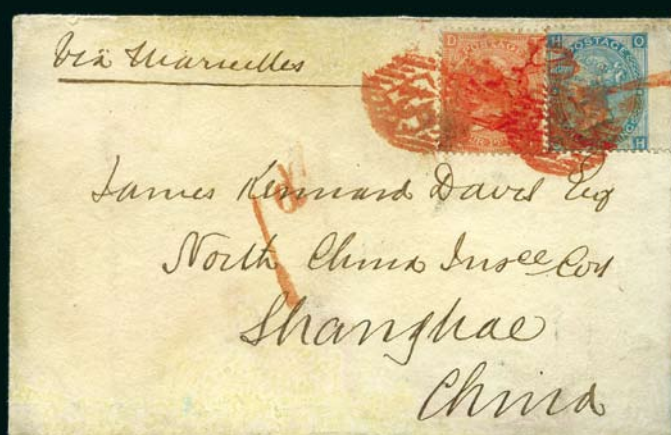 Via Marseilles
D POSTAGE
H POSTAGE O
H
1d
James Kennard Davis Esq
North China Insce Coy
Shanghae
China